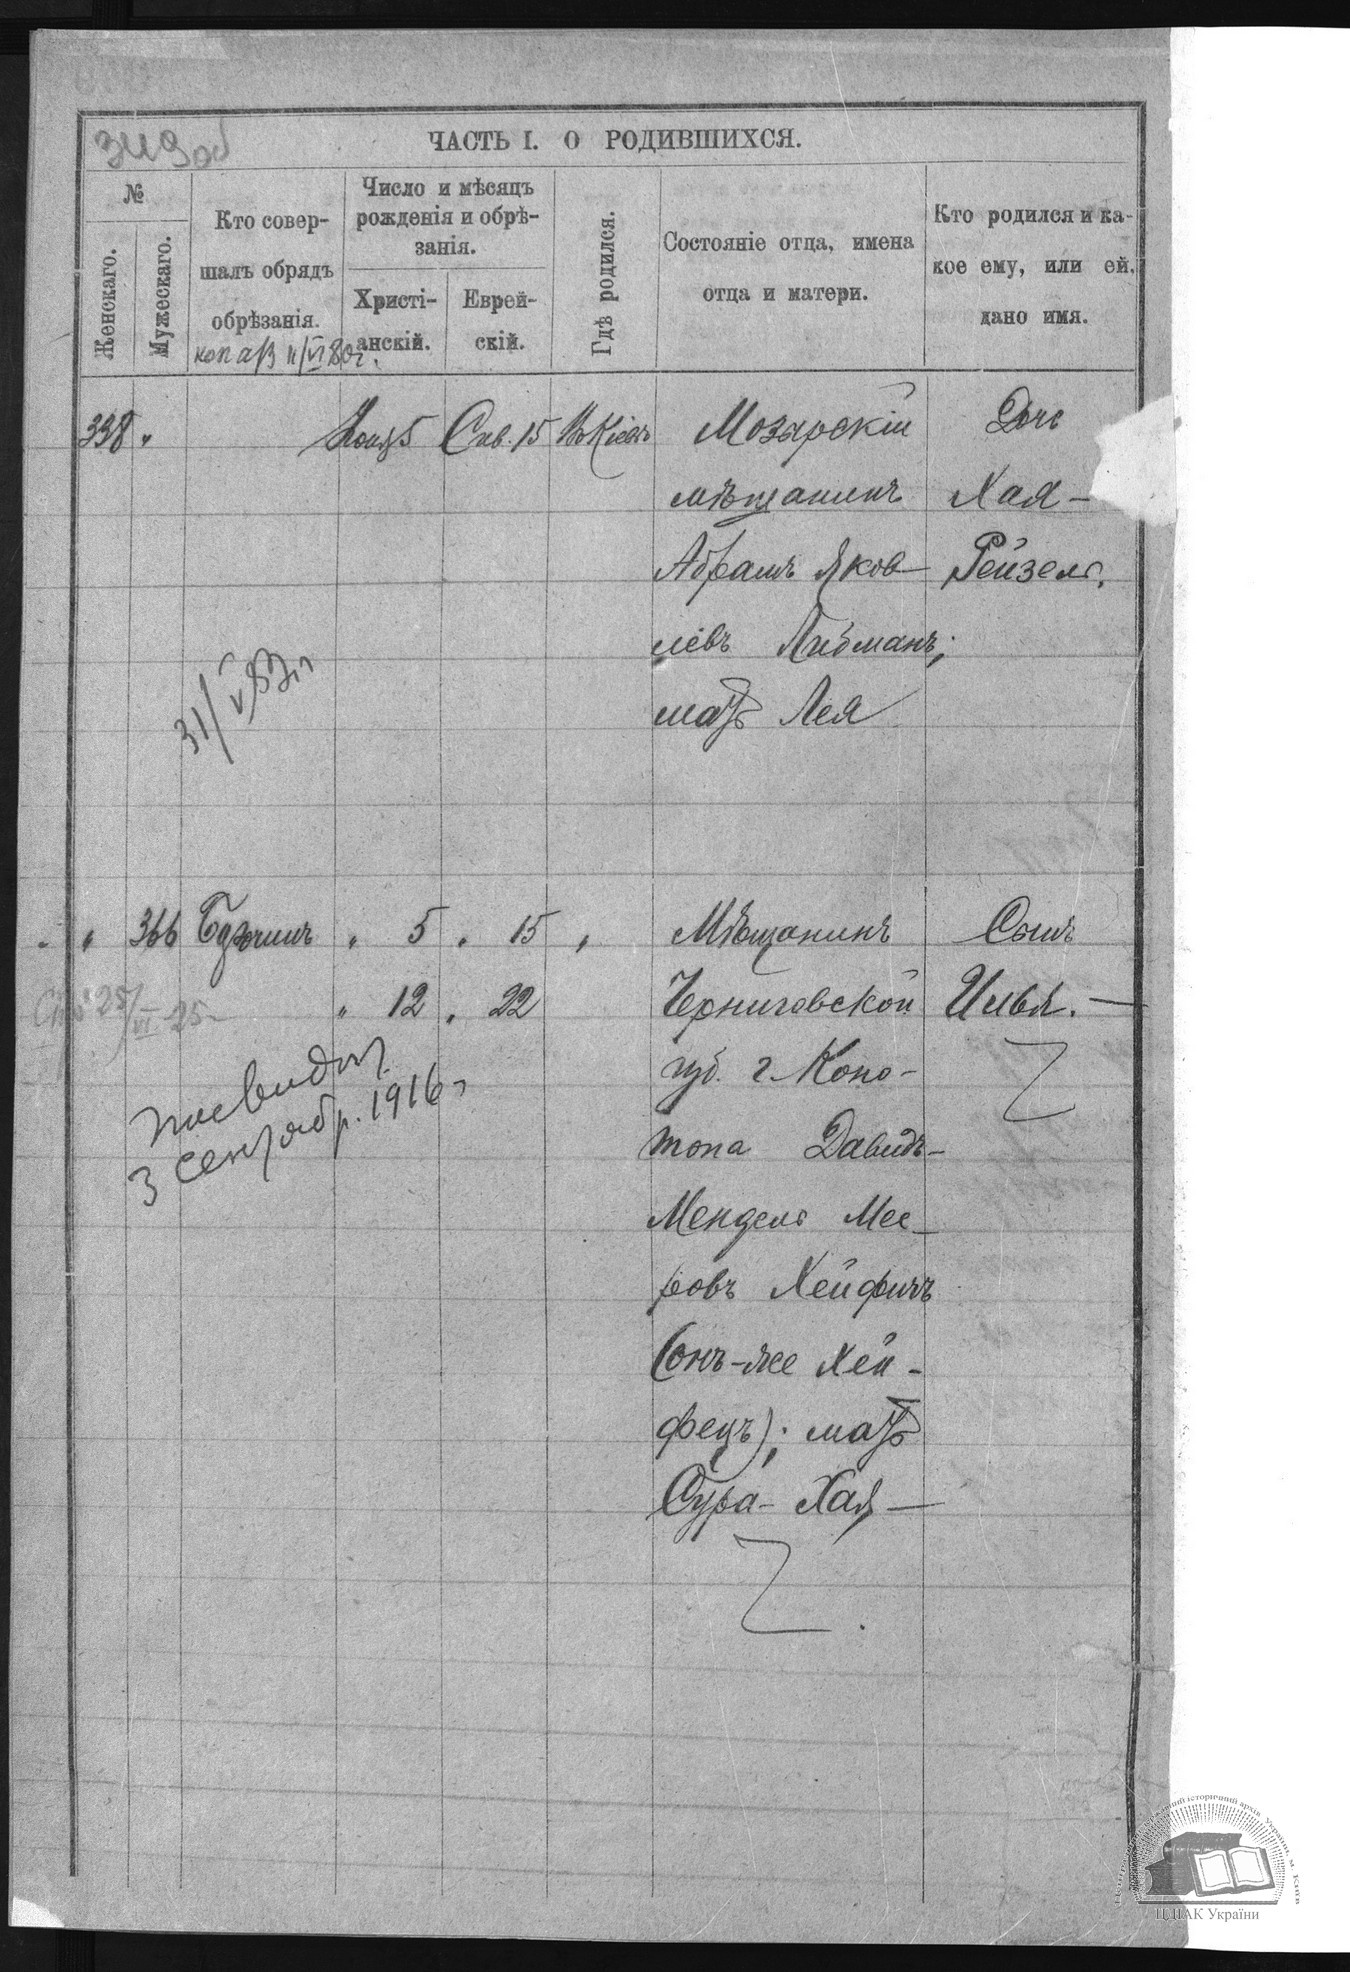 349 об
ЧАСТЬ I. О РОДИВШИХСЯ.
№
Женскаго.
Мужескаго.
Кто совер-
шалъ обрядъ
обрѣзанія.
Число и мѣсяцъ
рожденія и обрѣ-
занія.
Христі-
анскій.
Еврей-
скій.
Гдѣ родился.
Состояніе отца, имена
отца и матери.
Кто родился и ка-
кое ему, или ей,
дано имя.
338 "
5
15
Въ Кіевѣ
Мозырскій
мѣщанинъ
Абрамъ Яков-
левъ Либманъ;
мать Лея
Дочь
Хая-
Рейзель.
" 366
" 5 " 15 "
" 12 " 22
Мѣщанинъ
Черниговской
губ. г. Коно-
топа Давидъ-
Мендель Мее-
ровъ Хейфичъ
(онъ-же Хей-
фецъ); мать
Сура-Хая
Сынъ
Илья.
3 сентябр. 1916 г
ЦДІАК України